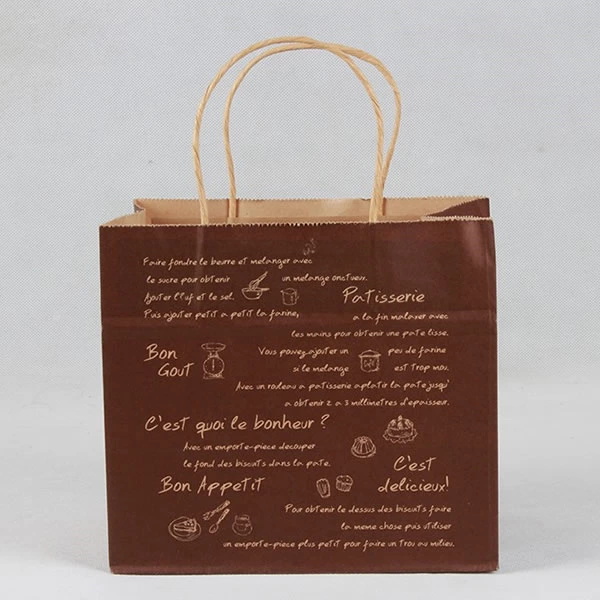 Faire fondre le beurre et melanger avec
le sucre pour obtenir un melange onctueux.
Ajouter l'uf et le sel.
Patisserie
Puis ajouter petit a petit la farine,
a la fin malaxer avec
les mains pour obtenir une pate lisse.
Bon
Gout
Vous pouvez ajouter un peu de farine
si le melange est trop mou.
Avec un rouleau a patisserie aplatir la pate jusqu'
a obtenir 2 a 3 millimetres d'epaisseur.
C'est quoi le bonheur ?
Avec un emporte-piece decouper
le fond des biscuits dans la pate.
C'est
delicieux!
Bon Appetit
Pour obtenir le dessus des biscuits faire
la meme chose puis utiliser
un emporte-piece plus petit pour faire un trou au milieu.